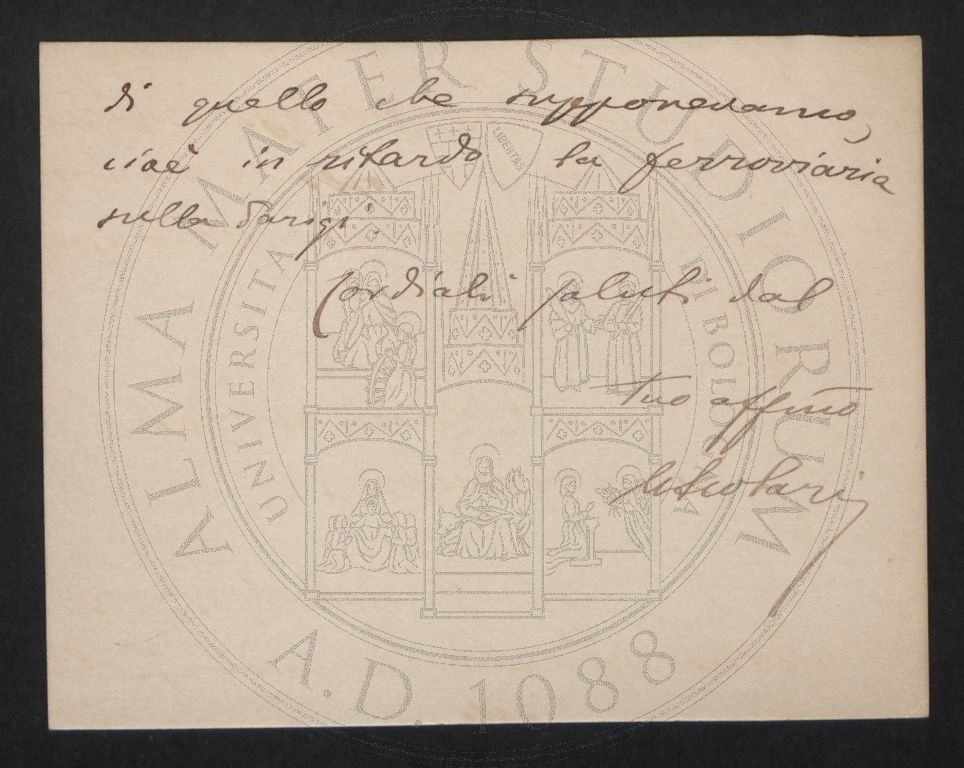 di quello che supponevamo,
cioè in ritardo la ferroviaria
sulla Parigi.
Cordiali saluti dal
tuo affmo
ALMA MATER STUDIORUM
UNIVERSITA DI BOLOGNA
LIBERTAS
A.D. 1088